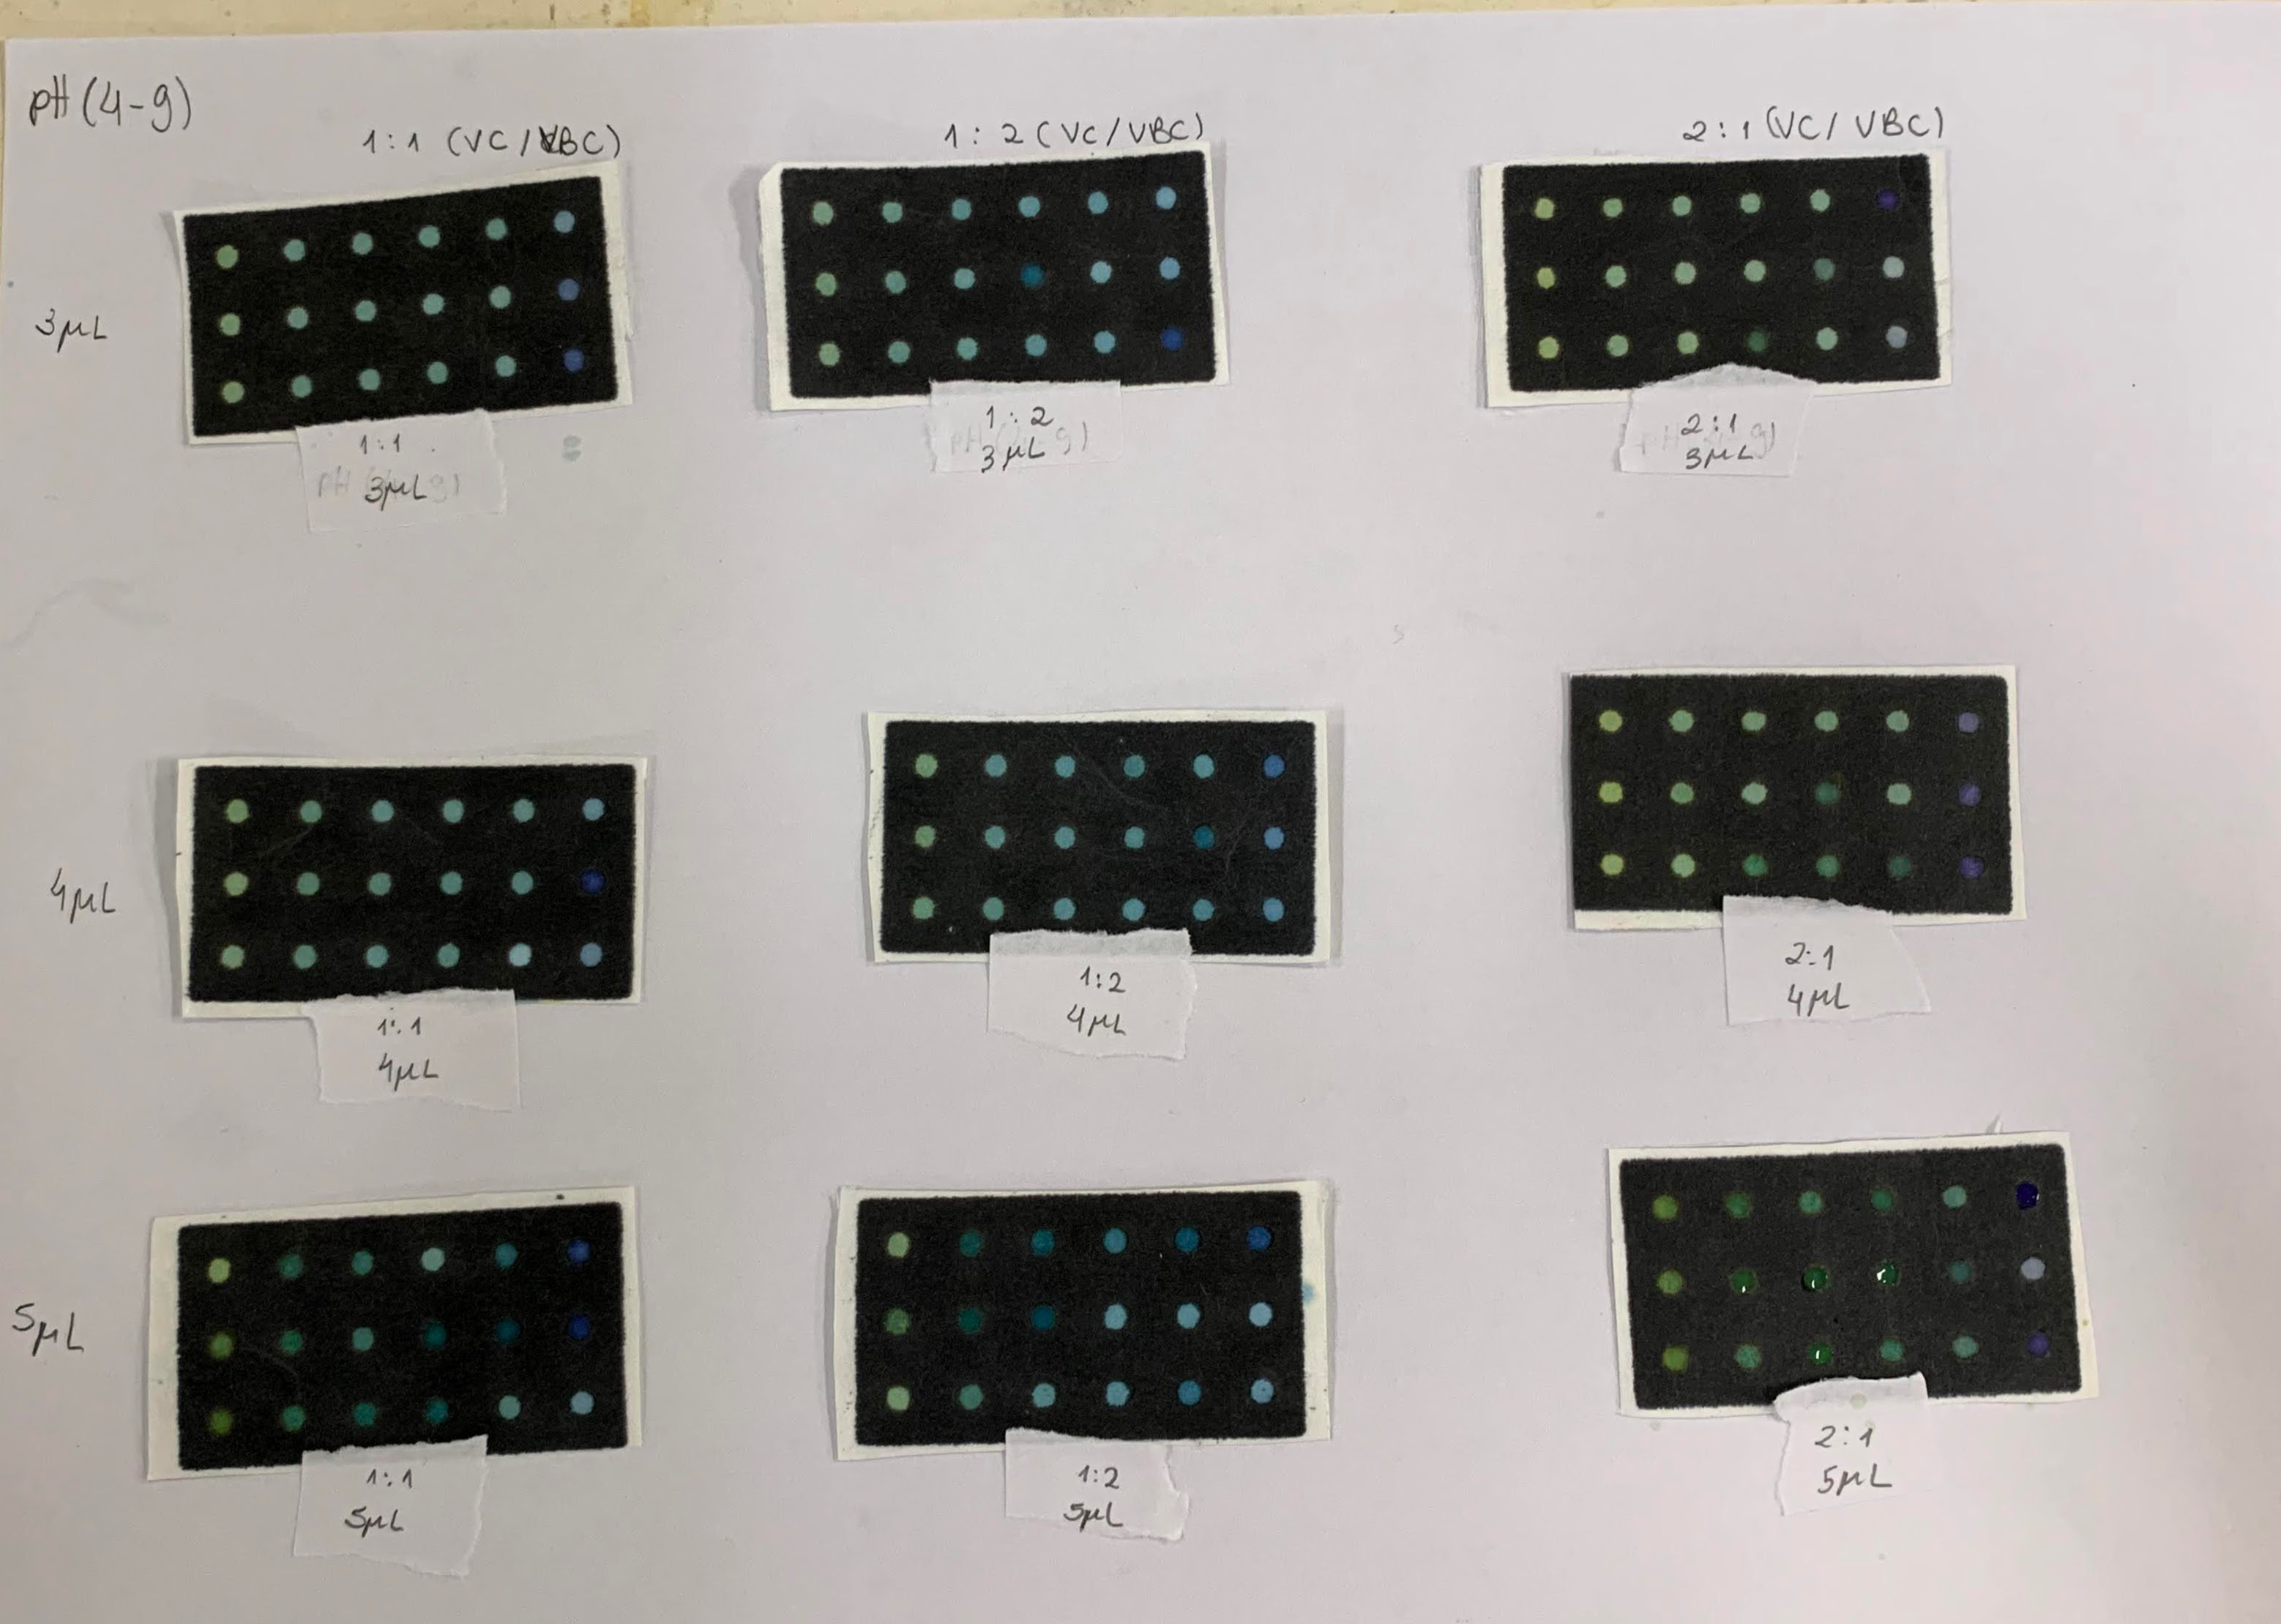 pH (4-9)
1:1 (VC/VBC)
1:2 (VC/VBC)
2:1 (VC/VBC)
3µL
1:1
pH 3µL 9)
1:2
pH ( 9)
3µL
2:1
pH 9)
3µL
4µL
1:1
4µL
1:2
4µL
2:1
4µL
5µL
1:1
5µL
1:2
5µL
2:1
5µL